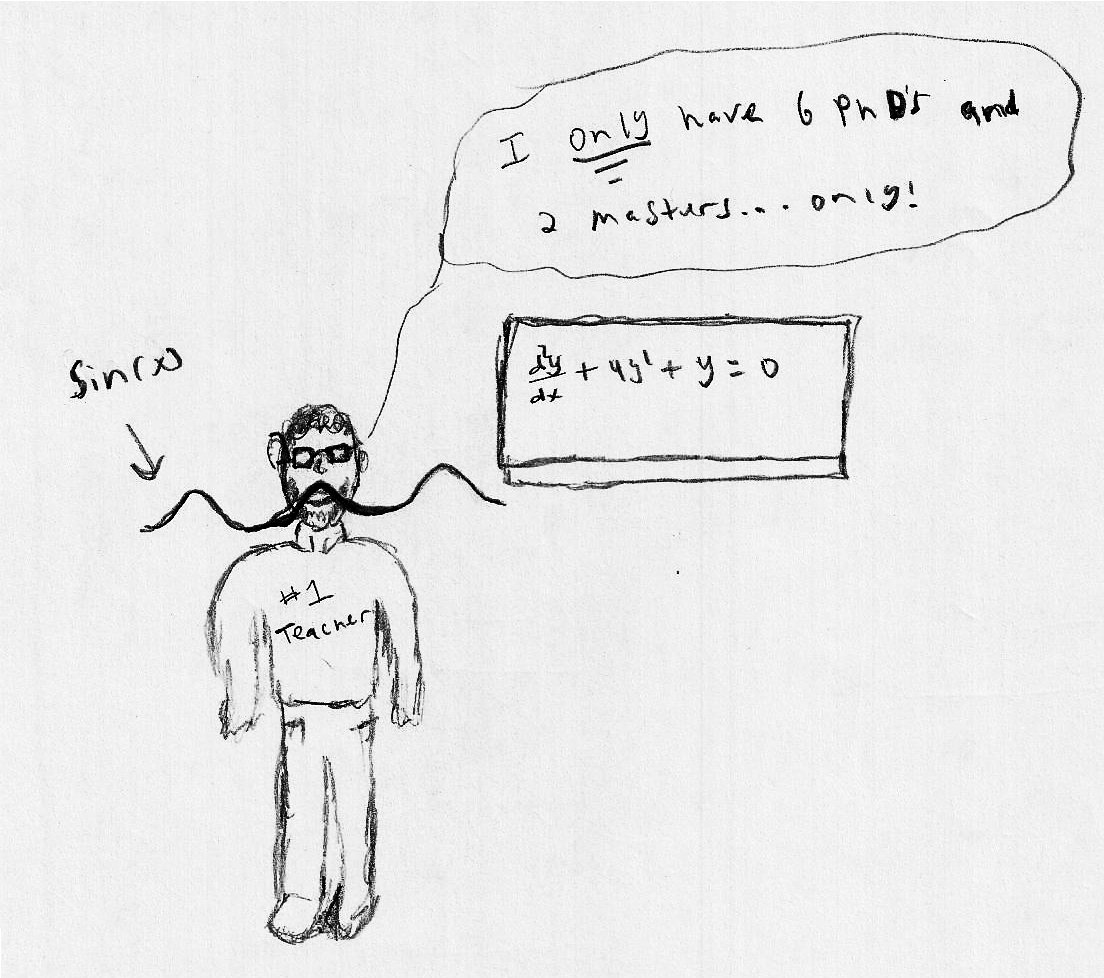 I only have 6 PhD's and
2 masturs... only!
sin(x)
d²y/dx + 4y' + y = 0
#1
Teacher